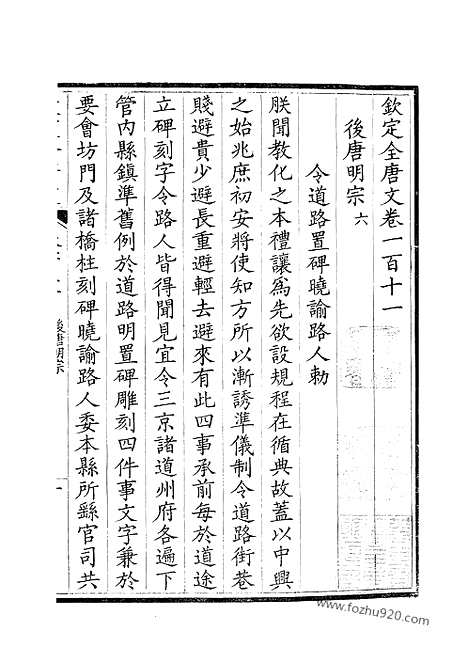 欽定全唐文卷一百十一
後唐明宗六
令道路置碑曉諭路人勅
朕聞教化之本禮讓爲先欲設規程在循典故蓋以中興
之始兆庶初安將使知方所以漸誘準儀制令道路街巷
賤避貴少避長重避輕去避來有此四事承前每於道途
立碑刻字令路人皆得聞見宜令三京諸道州府各遍下
管內縣鎮準舊例於道路明置碑雕刻四件事文字兼於
要會坊門及諸橋柱刻碑曉諭路人委本縣所繇官司共
後唐明宗
一
www.fozhu920.com